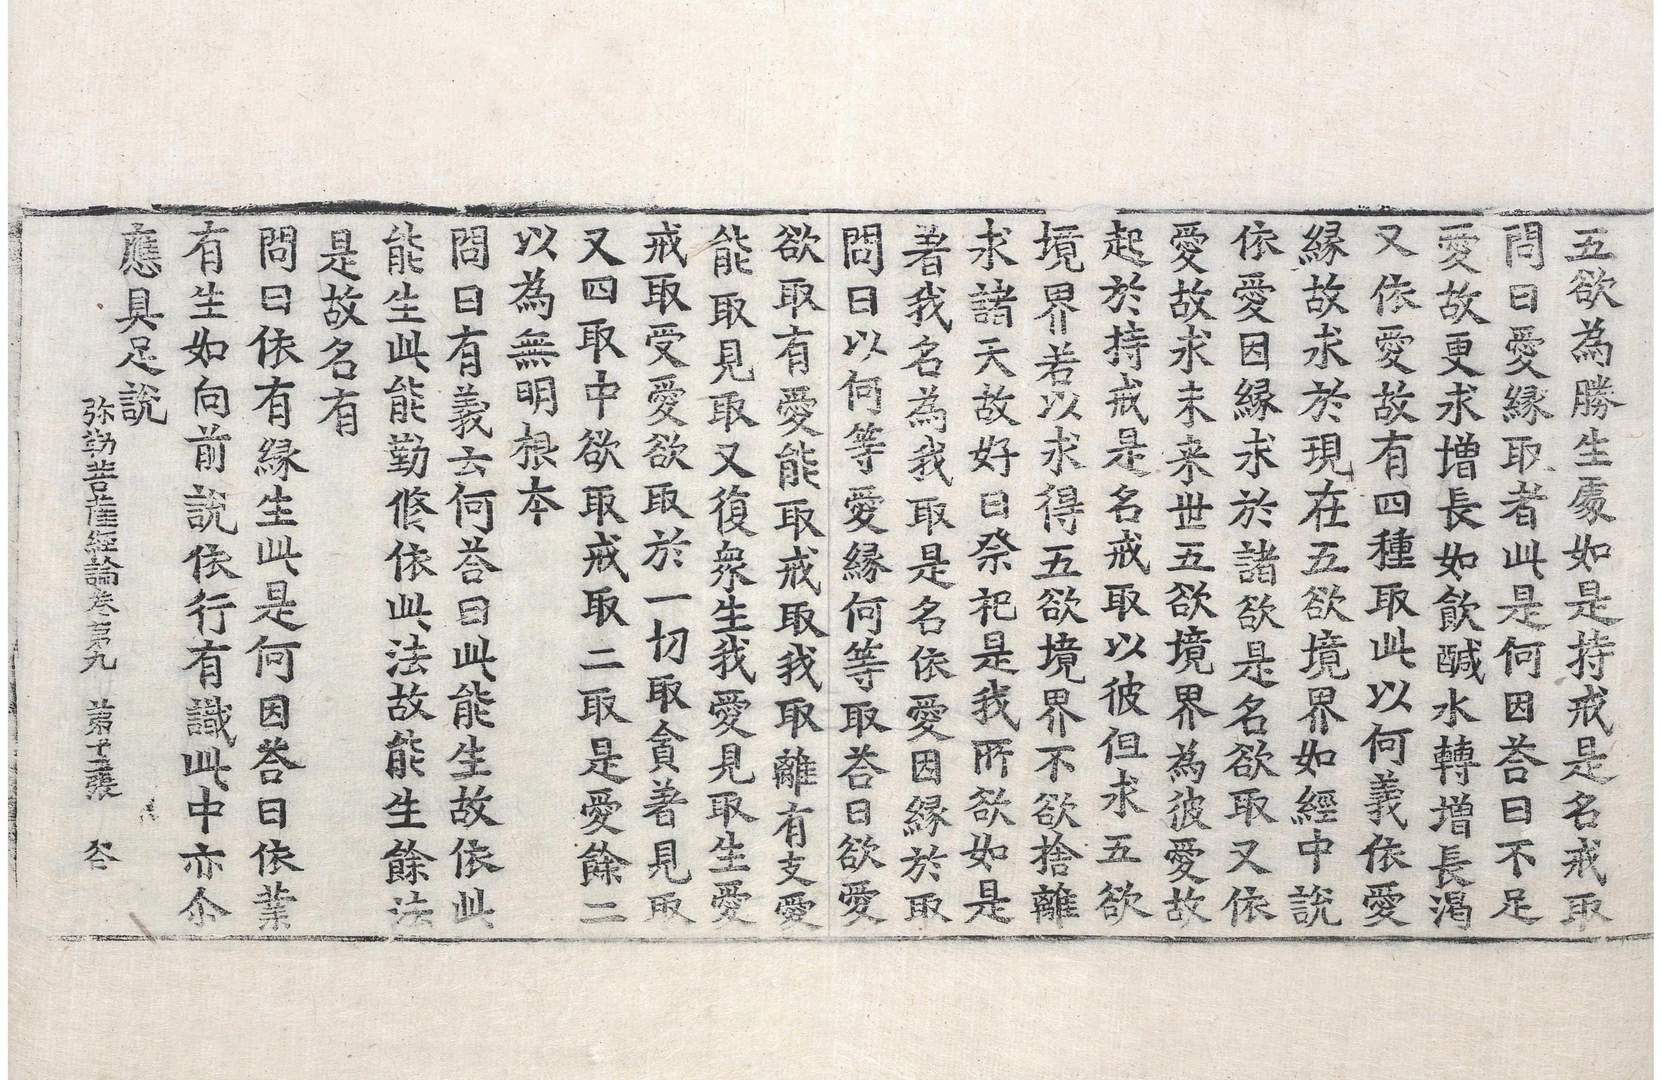 五欲為勝生處如是持戒是名戒取
問曰愛縁取者此是何因荅曰不足
愛故更求增長如飲醎水轉增長渴
又依愛故有四種取此以何義依愛
縁故求於現在五欲境界如經中說
依愛因縁求於諸欲是名欲取又依
愛故求未来世五欲境界為彼愛故
起於持戒是名戒取以彼但求五欲
境界若以求得五欲境界不欲捨離
求諸天故好日祭祀是我所欲如是
著我名為我取是名依愛因縁於取
問曰以何等愛縁何等取荅曰欲愛
欲取有愛能取戒取我取離有支愛
能取見取又復衆生我愛見取生愛
戒取受愛欲取於一切取貪著見取
又四取中欲取戒取二取是愛餘二
以為無明根本
問曰有義云何荅曰此能生故依此
能生此能勤修依此法故能生餘法
是故名有
問曰依有縁生此是何因荅曰依業
有生如向前說依行有識此中亦尒
應具足說
弥勒菩薩經論卷第九　第十二張